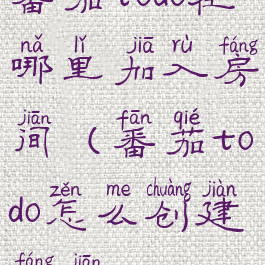 番茄todo在
nǎ lǐ jiā rù fáng
哪里加入房
jiān fān qié
间(番茄to
zěn me chuàng jiàn
do怎么创建
fáng jiān